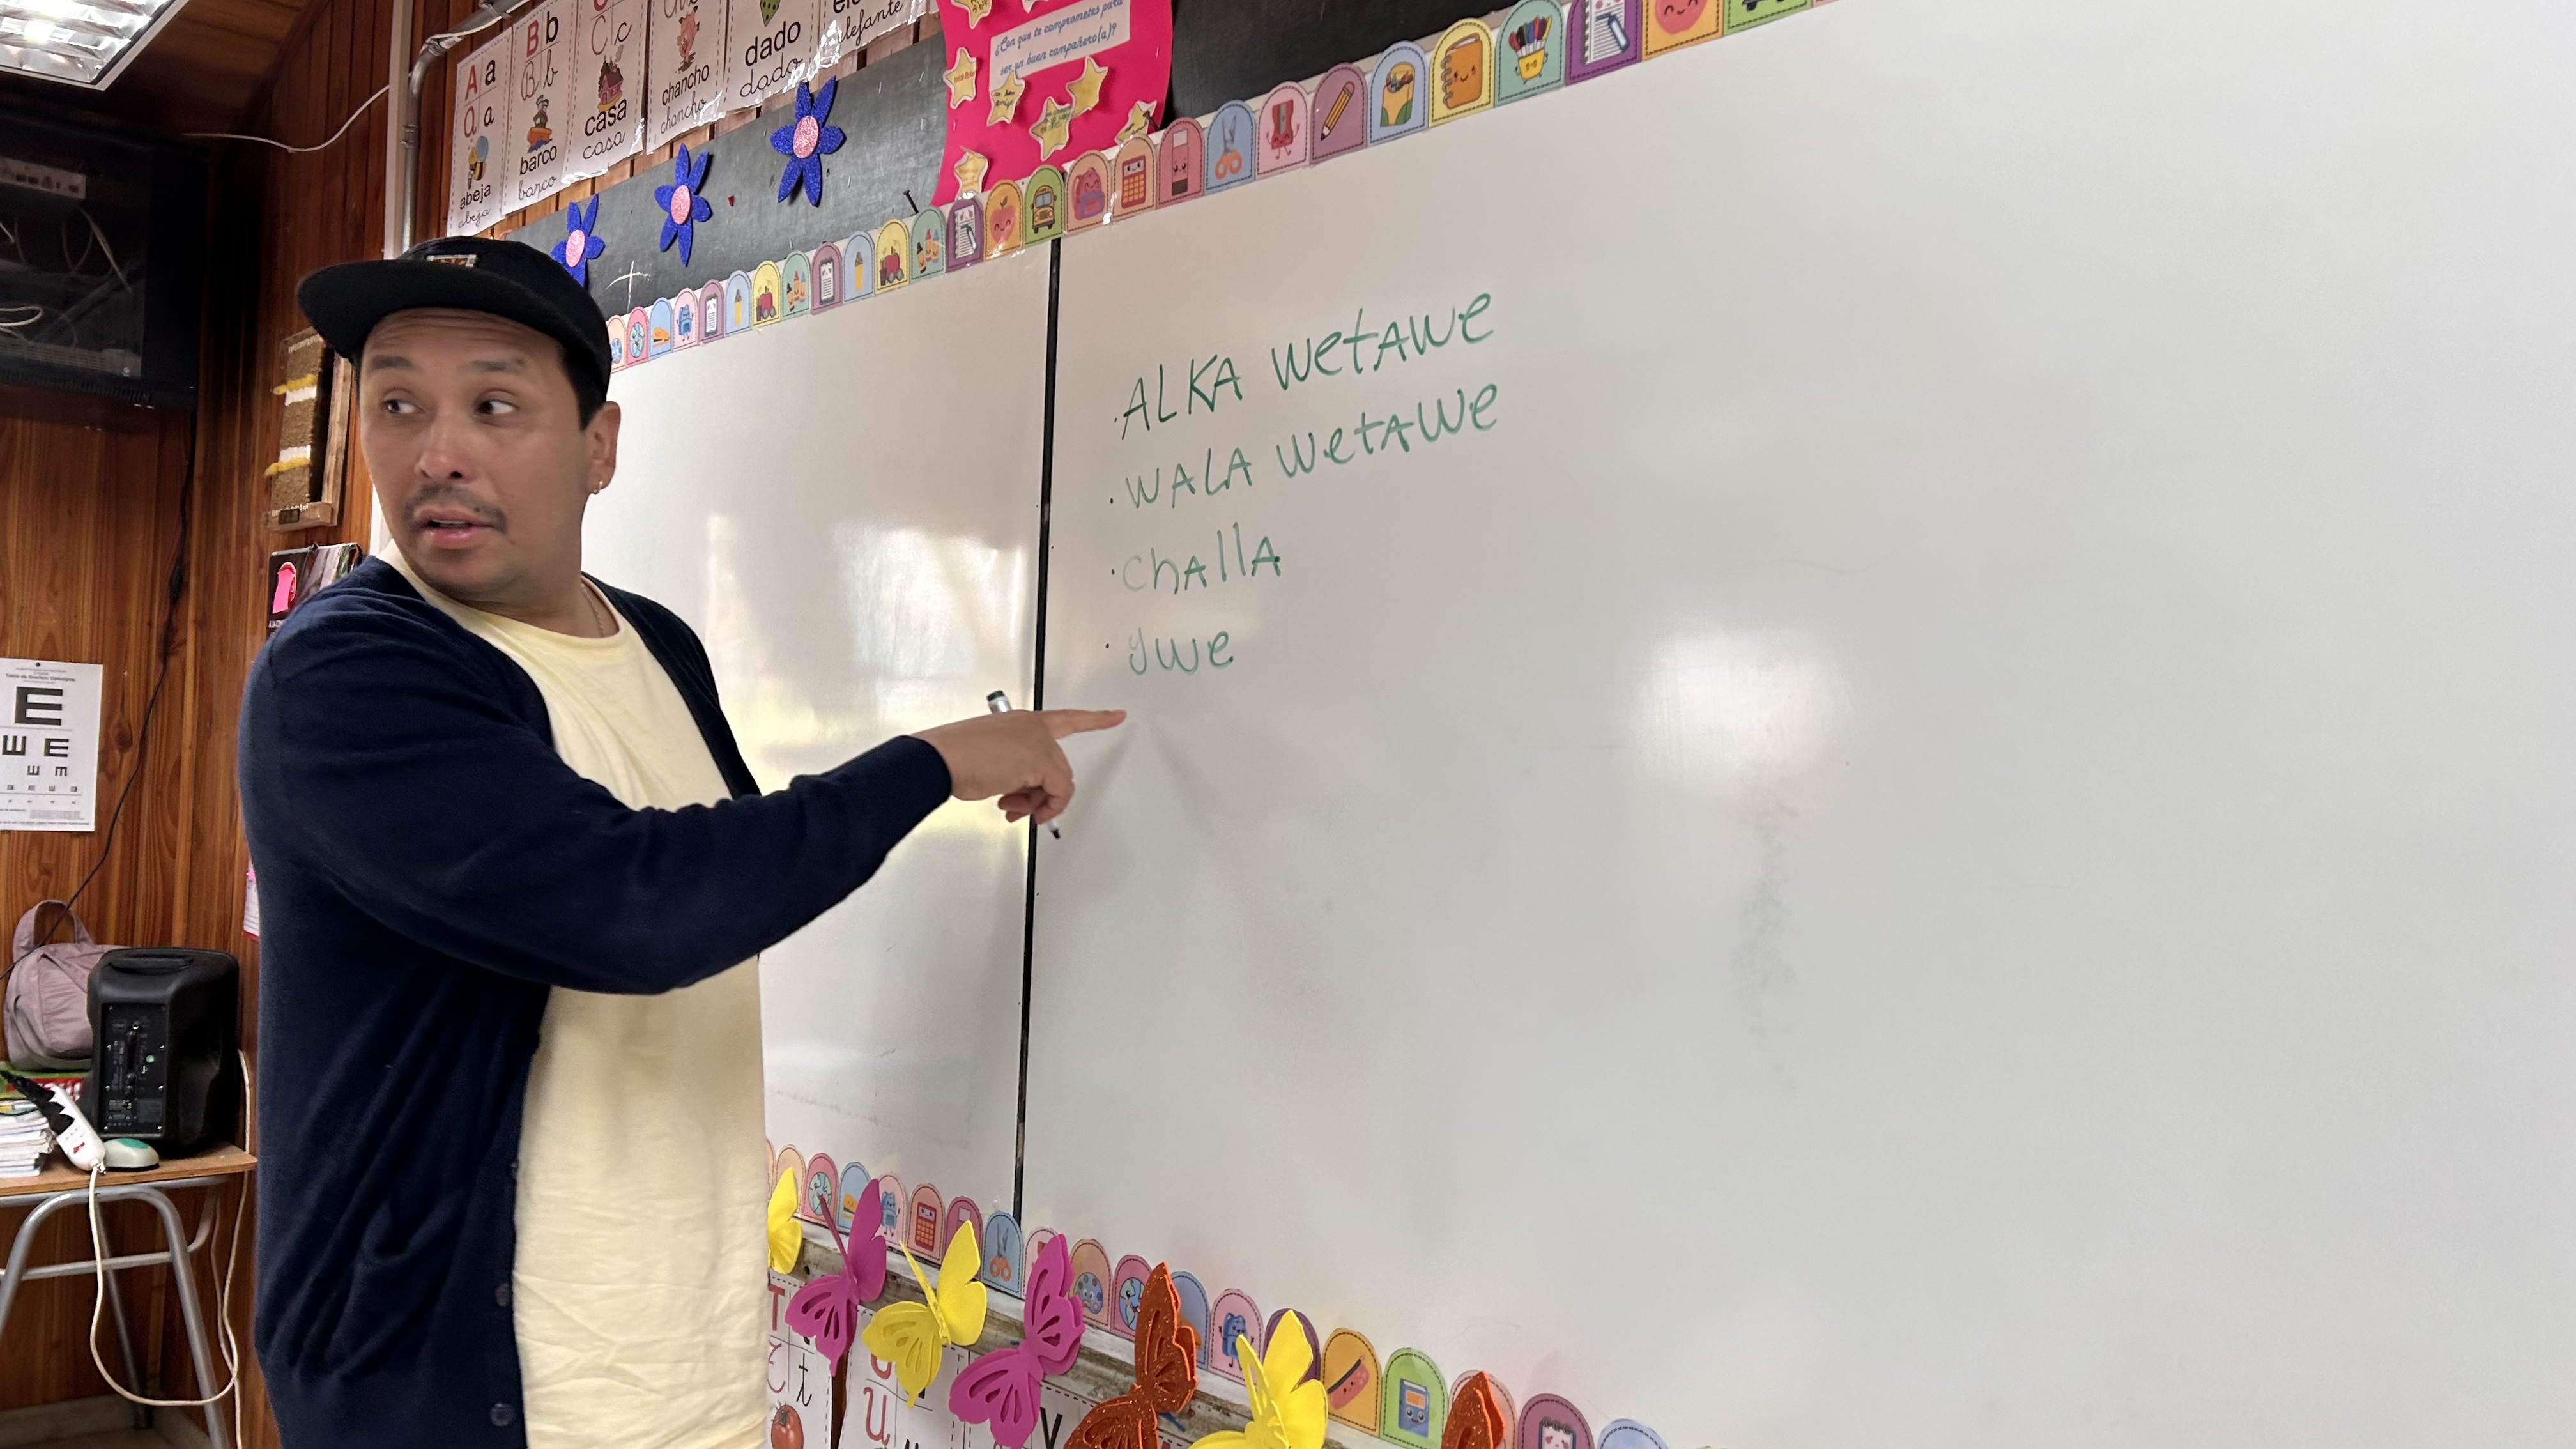 A a
a a
abeja
abeja
B b
B b
barco
barco
C c
casa
casa
chancho
chancho
dado
dado
elefante
¿Con que te comprometes para
ser un buen compañero(a)?
· ALKA wetAwe
· WALA WetAWe
· chAllA
· ywe
E
E
T
t
U
V